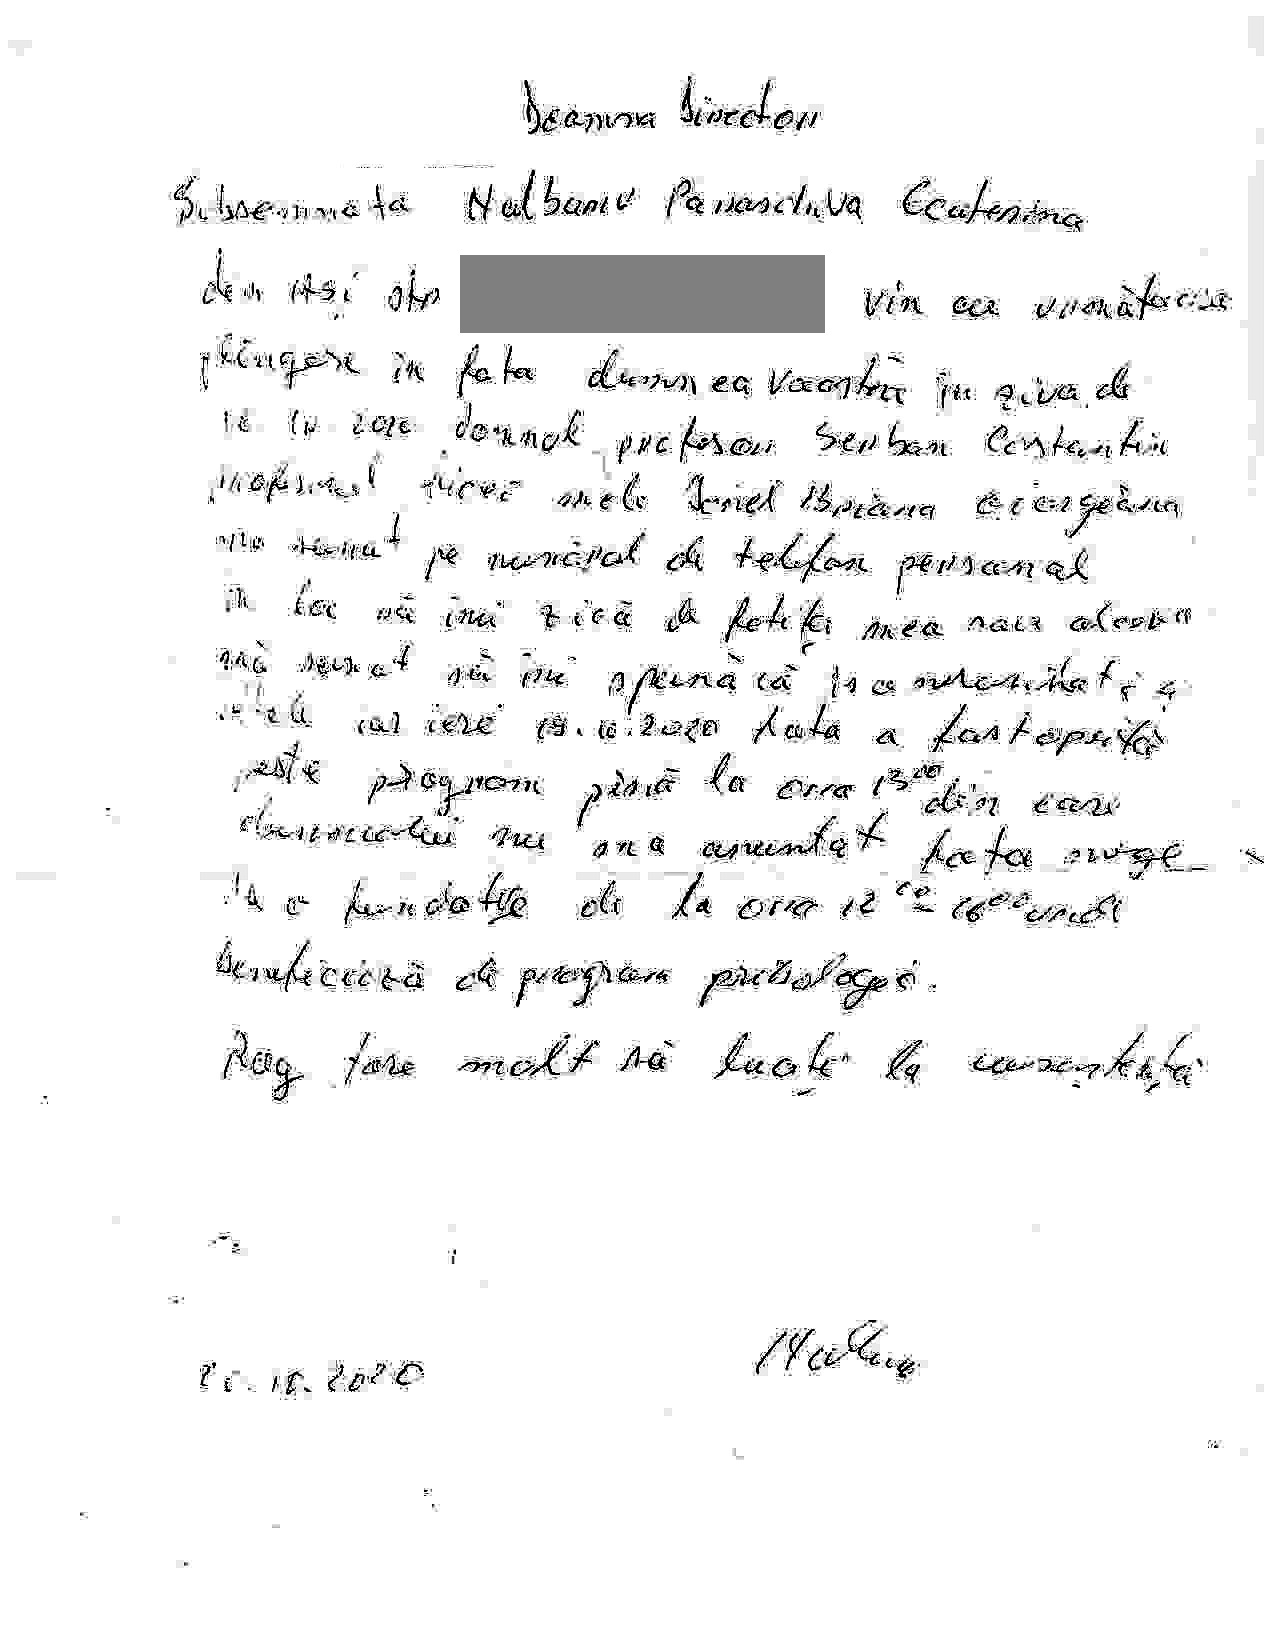 Deamna Director
Subsemnata Nalbaru Paraschiva Ecaterina
din Iași str vin cu următoarea
plîngere în fata dumneavoastră în ziua de
2020 domnul profesor Serban Costantin
profesorul fiicei mele Briana Georgeana
ma sunat pe numărul de telefon personal
în loc să îmi zică de fetița mea sau altceva
mă sunat să îmi spună că
iar ieri 19.10.2020 fata a fost oprită
peste program pînă la ora 13 00 din care
dumnealui nu ma anuntat fata merge
la o fundatie de la ora 12 00 - 16 00 unde
beneficiază de program psihologei.
Rog fare mult să luați la cunostență
20.10.2020